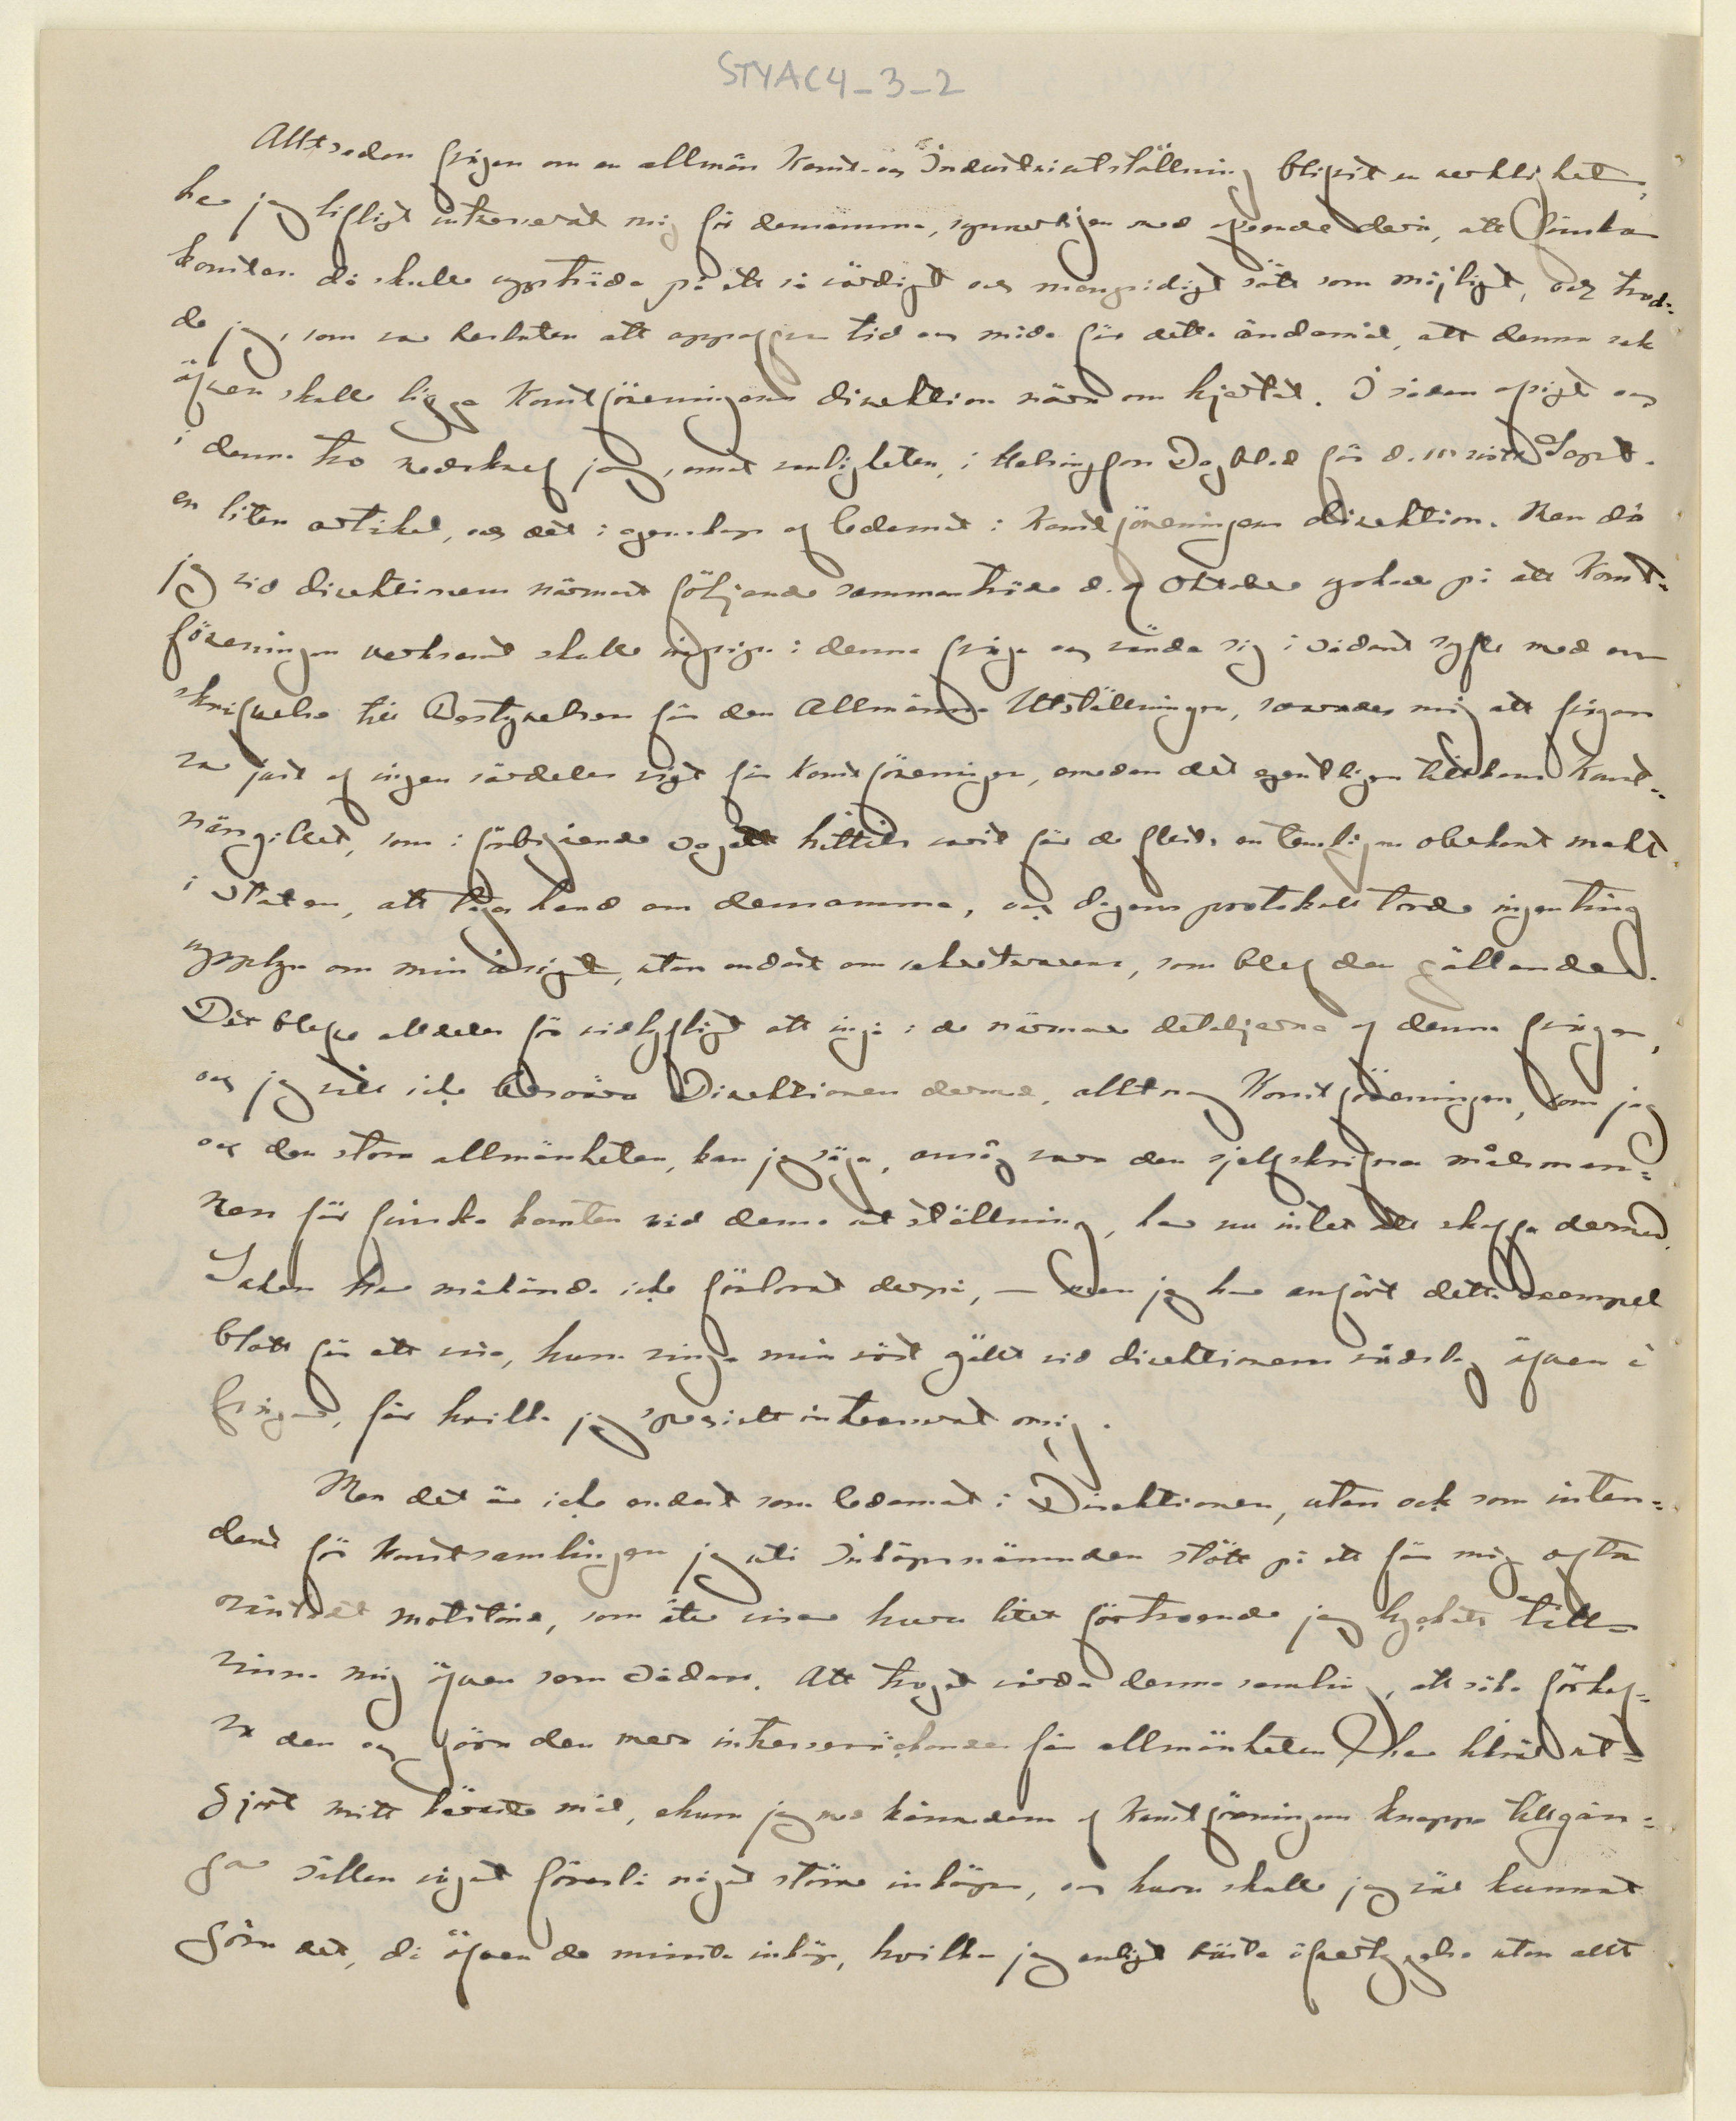 STYAC4_3_2
Alltsedan frågan om en allmän Konst- och Industriutställning blifvit en verklighet,
har jag lifligt intresserat mig för densamma, synnerligen med afseende derå, att finska
konsten då skulle uppträda på ett så värdigt och mångsidigt sätt som möjligt, och trod-
de jag, som var besluten att uppoffra tid och möda för detta ändamål, att denna sak
äfven skulle ligga Konstföreningens direktion nära om hjertat. I sådan afsigt och
i denna tro nedskref jag, emot vanligheten, i Helsingfors Dagblad för d. sistl. Sept.
en liten artikel, och det i egenskap af ledamot i Konstföreningens direktion. Men då
jag vid direktionens närmast följande sammanträde d. 9 Oktober yrkade på att Konst-
föreningen verksamt skulle ingripa i denna fråga och vända sig i sådant syfte med en
skrifvelse till Bestyrelsen för den Allmänna Utställningen, svarades mig att frågan
var just af ingen särdeles vigt för Konstföreningen, emedan det egentligen tillkom Konst-
närsgillet, som i förbigående sagdt hittills varit för de flesta en temligen obekant makt
i staten, att taga hand om densamma, och dagens protokoll torde ingenting
upplysa om min åsigt, utan endast om sekreterarens, som blef den gällande.
Det blefve alldeles för vidlyftigt att ingå i de närmare detaljerna af denna frågan,
och jag vill icke besvära Direktionen dermed, alltnog Konstföreningen, som jag
och den stora allmänheten, kan jag säga, ansåg vara den sjelfskrifna målsman-
nen för finska konsten vid denna utställning, har nu intet att skaffa dermed.
Saken har måhända icke förlorat derpå, – men jag har anfört detta exempel
blott för att visa, huru ringa min röst gällt vid direktionens rådslag äfven i
frågor, för hvilka jag speciellt intresserat mig.
Men det är icke endast som ledamot i Direktionen, utan ock som inten-
dent för konstsamlingen jag uti Inköpsnämnden stött på ett för mig ofta
oväntadt motstånd, som åter visar huru litet förtroende jag lyckats till-
vinna mig äfven som sådan. Att troget vårda denna samling, att söka förkof-
ra den och göra den mera intresseväckande för allmänheten har likväl ut-
gjort mitt käraste mål, ehuru jag med kännedom af Konstföreningens knappa tillgån-
gar sällan vågat föreslå något större inköp, och huru skulle jag väl kunnat
göra det, då äfven de minsta inköp, hvilka jag enligt bästa öfvertygelse utan allt